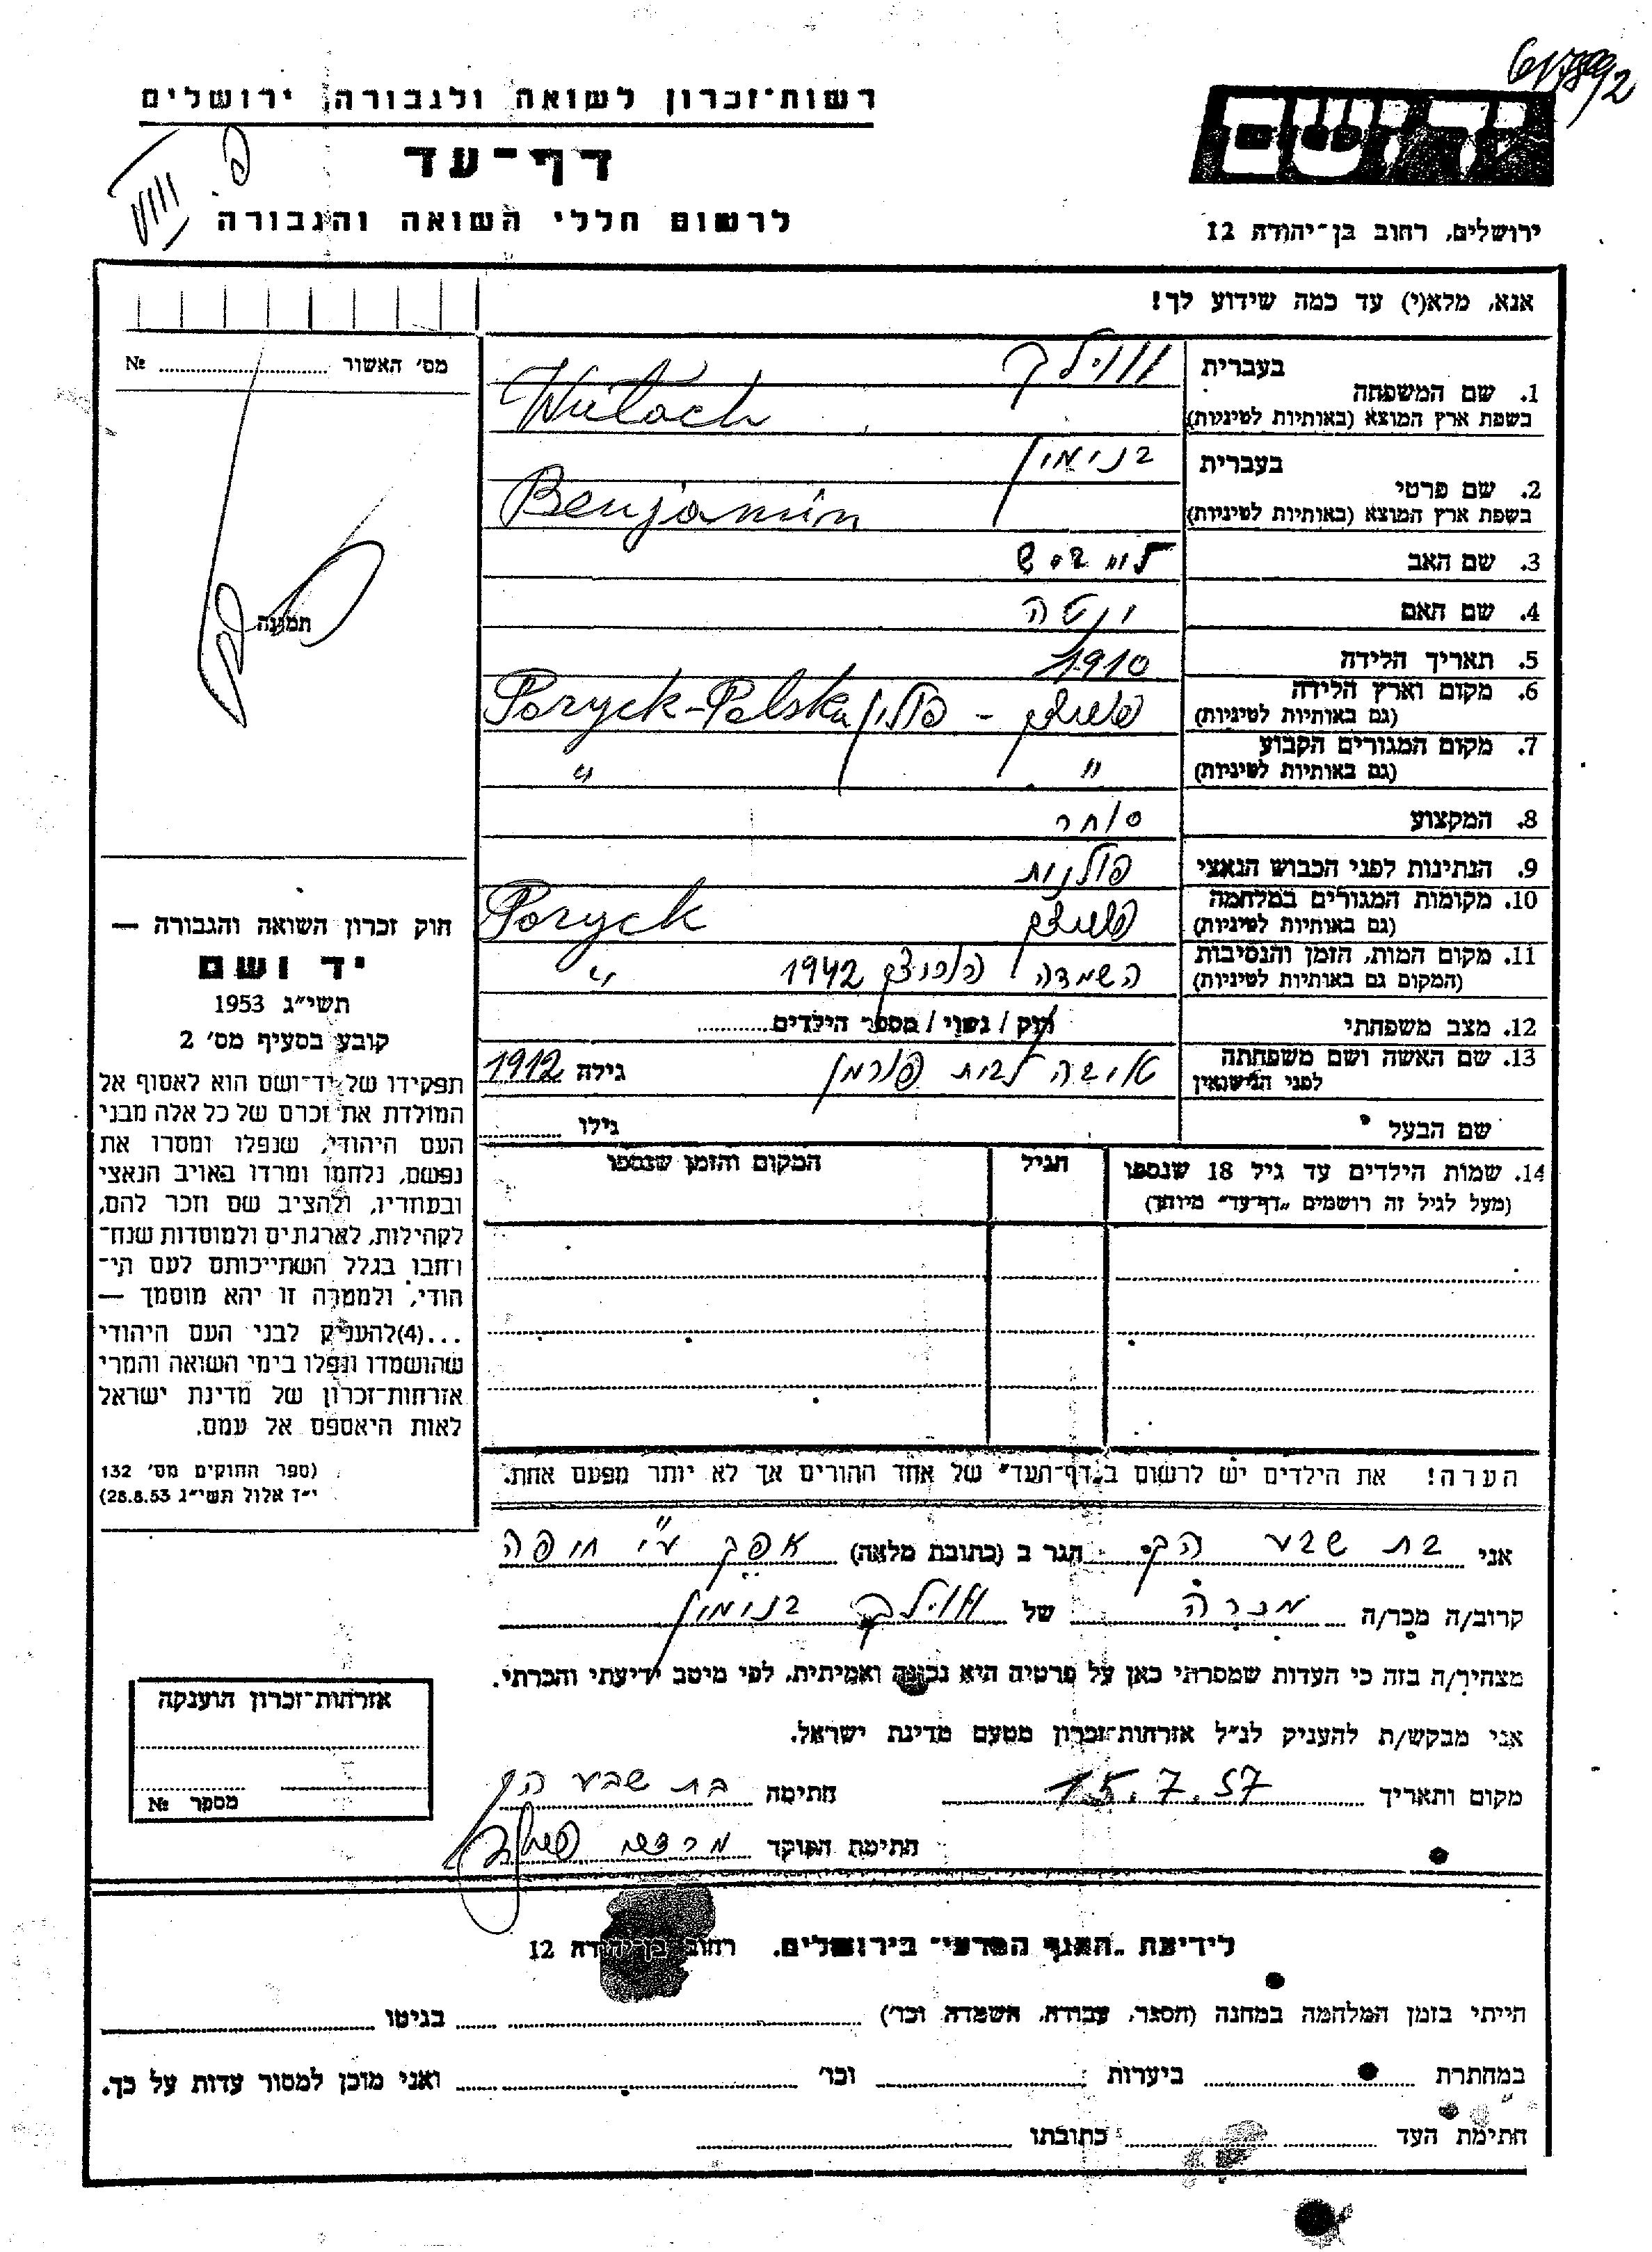 רשות־זכרון לשואה ולגבורה, ירושלים
דף־עד
לרשום חללי השואה והגבורה
ירושלים, רחוב בן־יהודה 12
אנא, מלא(י) עד כמה שידוע לך!
מס׳ האשור ........ №
תמונה
1. שם המשפחה
בעברית
בשפת ארץ המוצא (באותיות לטיניות)
2. שם פרטי
בעברית בנימין
בשפת ארץ המוצא (באותיות לטיניות) Benjamin
3. שם האב
4. שם האם
5. תאריך הלידה 1910
6. מקום וארץ הלידה
(גם באותיות לטיניות) פולין Poryck-Polska
7. מקום המגורים הקבוע
(גם באותיות לטיניות) " "
8. המקצוע סוחר
9. הנתינות לפני הכבוש הנאצי פולנית
10. מקומות המגורים במלחמה
(גם באותיות לטיניות) Poryck
11. מקום המות, הזמן והנסיבות
(המקום גם באותיות לטיניות) השמדה 1942 "
12. מצב משפחתי רוק / נשוי / מספר הילדים
13. שם האשה ושם משפחתה
לפני הנישואין לבית גילה 1912
שם הבעל גילו
14. שמות הילדים עד גיל 18 שנספו
(מעל לגיל זה רושמים „דף־עד" מיוחד)
הגיל
המקום והזמן שנספו
הערה! את הילדים יש לרשום ב„דף־העד" של אחד ההורים אך לא יותר מפעם אחת.
חוק זכרון השואה והגבורה —
יד ושם
תשי״ג 1953
קובע בסעיף מס׳ 2
תפקידו של יד־ושם הוא לאסוף אל
המולדת את זכרם של כל אלה מבני
העם היהודי, שנפלו ומסרו את
נפשם, נלחמו ומרדו באויב הנאצי
ובעוזריו, ולהציב שם וזכר להם,
לקהילות, לארגונים ולמוסדות שנח־
רבו בגלל השתייכותם לעם הי־
הודי, ולמטרה זו יהא מוסמך —
...(4)להעניק לבני העם היהודי
שהושמדו ונפלו בימי השואה והמרי
אזרחות־זכרון של מדינת ישראל
לאות היאספם אל עמם.
(ספר החוקים מס׳ 132
י״ז אלול תשי״ג 28.8.53)
אני בת שבע הגר ב (כתובת מלאה) אפק ע״י חיפה
קרוב/ה מכר/ה מכרה של בנימין
מצהיר/ה בזה כי העדות שמסרתי כאן על פרטיה היא נכונה ואמיתית, לפי מיטב ידיעתי והכרתי.
אני מבקש/ת להעניק לנ״ל אזרחות־זכרון מטעם מדינת ישראל.
מקום ותאריך 15.7.57 חתימה בת שבע
חתימת הפוקד
אזרחות־זכרון הוענקה
מספר №
לידיעת רחוב בן־יהודה 12 בירושלים.
הייתי בזמן המלחמה במחנה (הסגר, עבודה, השמדה וכו׳) בגיטו
במחתרת ביערות וכו׳ ואני מוכן למסור עדות על כך.
חתימת העד כתובתו